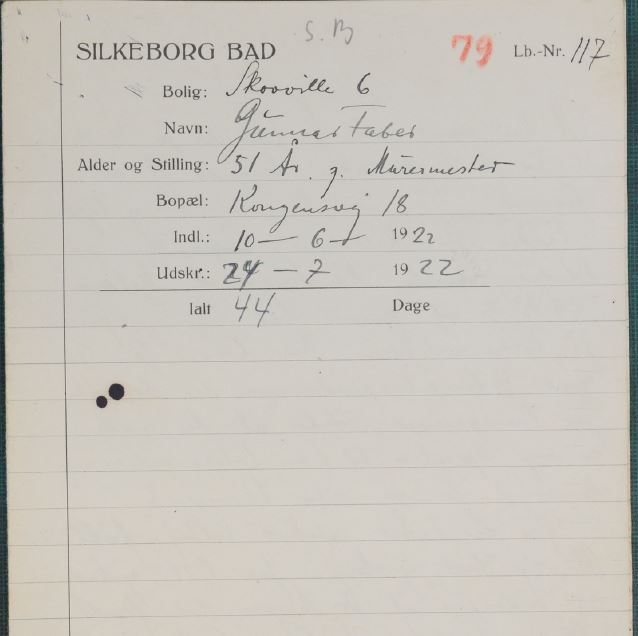 S. B
SILKEBORG BAD 79 Lb.-Nr. 117
Bolig: Skovville 6
Navn: Gunnar Faber
Alder og Stilling: 51 År. g. Murermester
Bopæl: Kongensvej 18
Indl.: 10 — 6 — 1922
Udskr.: 24 — 7 1922
Ialt 44 Dage